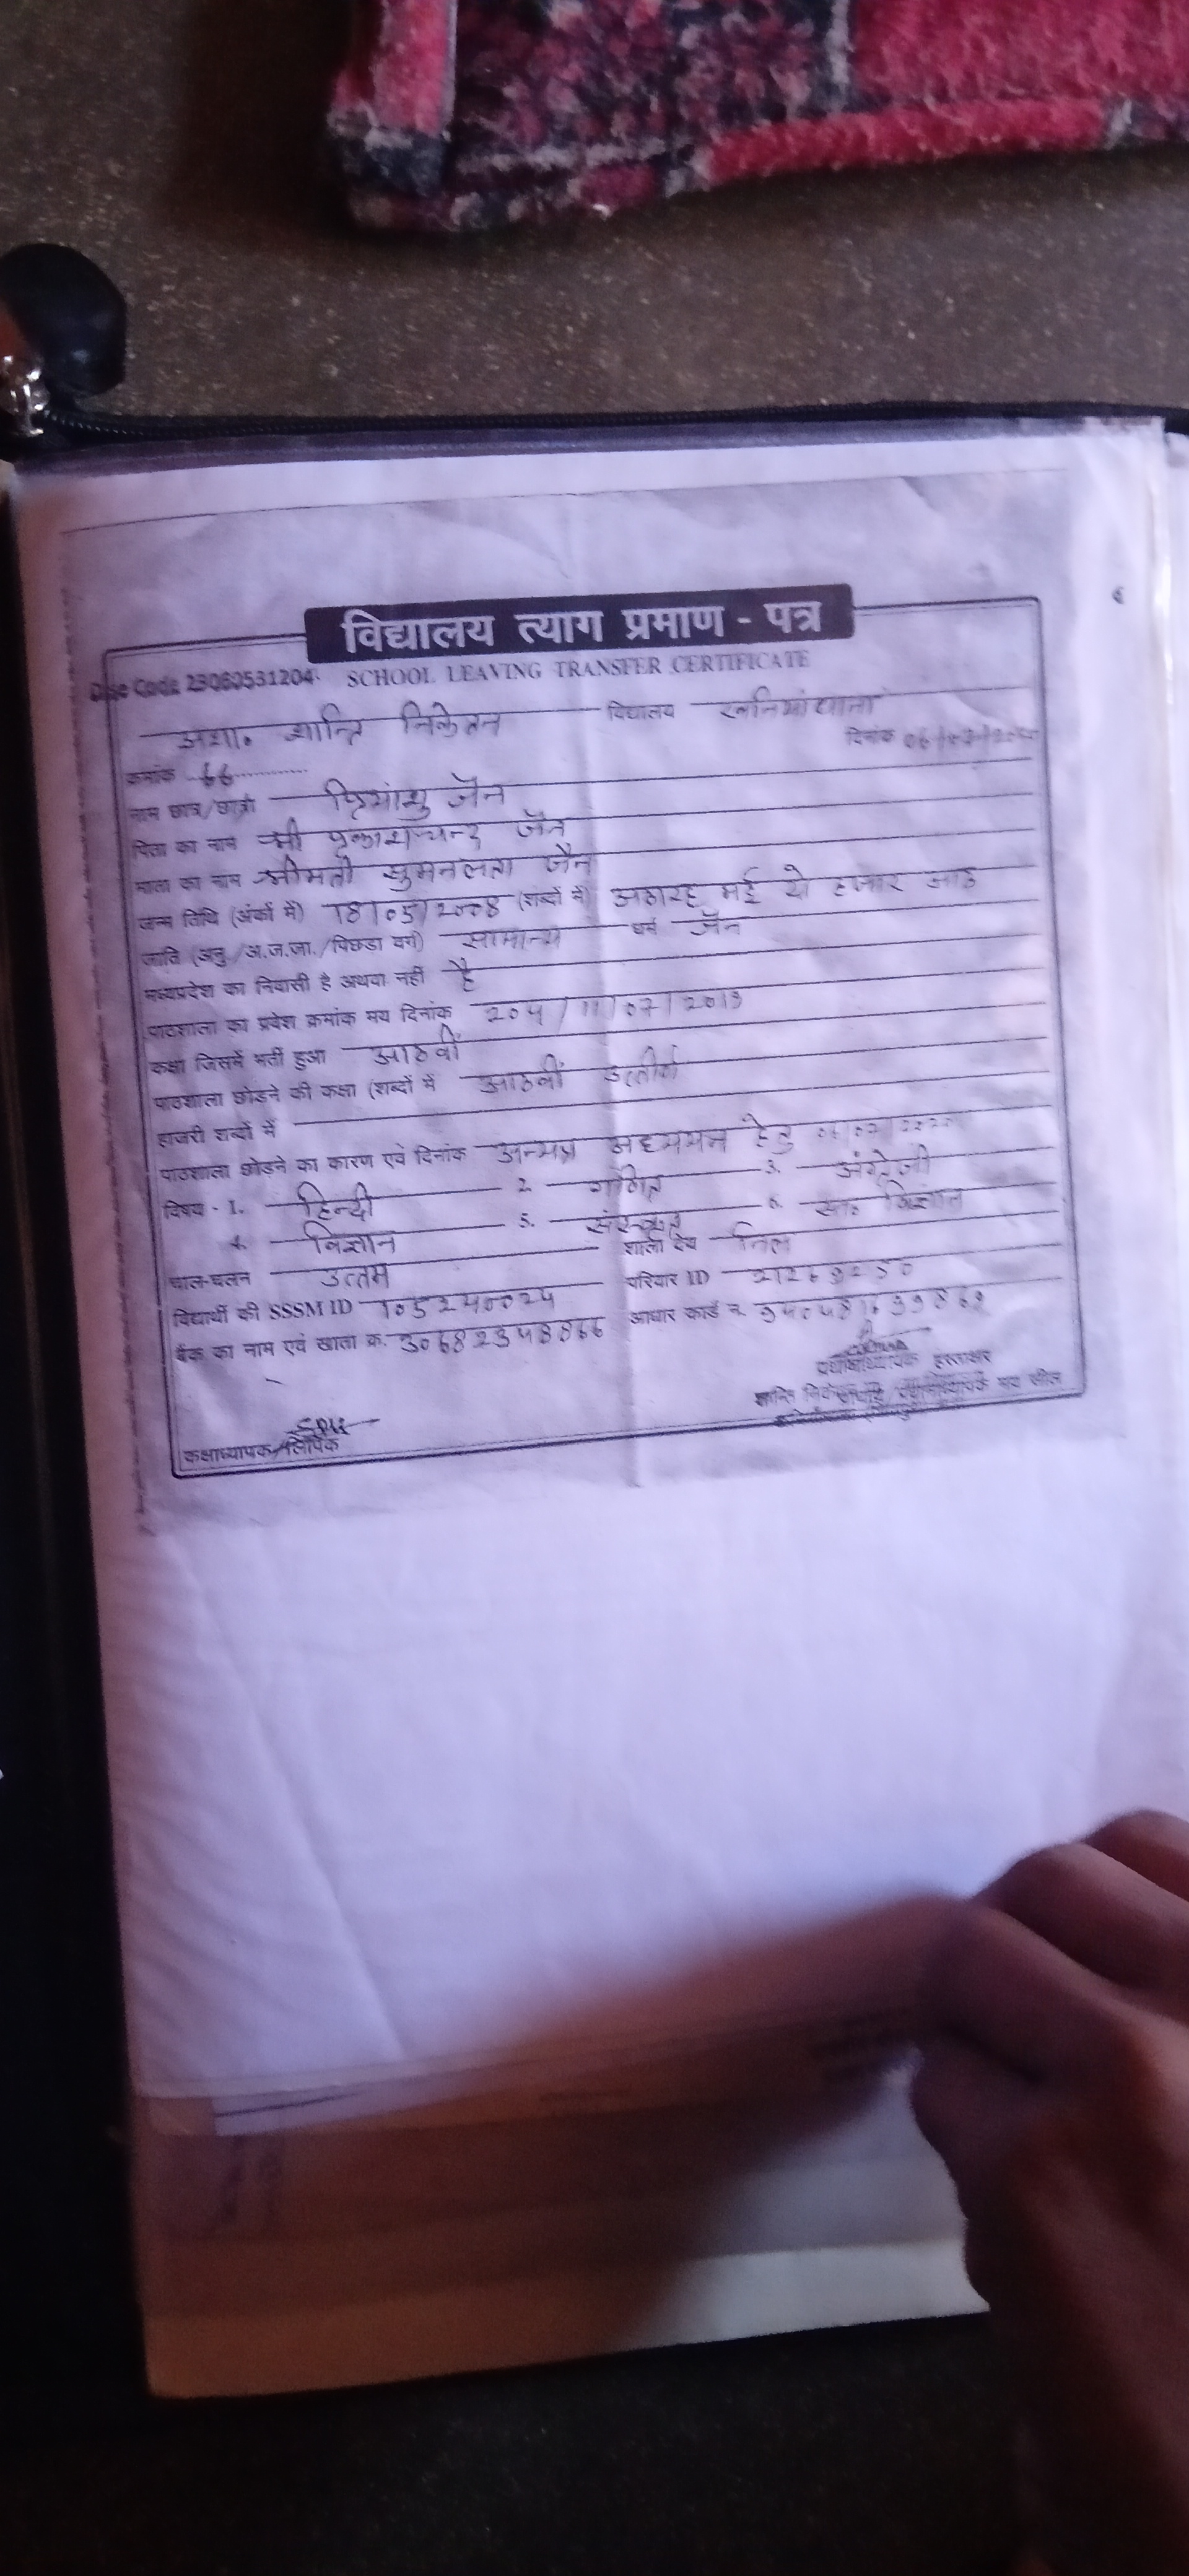 विद्यालय त्याग प्रमाण - पत्र
Dise Code 23060531204 SCHOOL LEAVING TRANSFER CERTIFICATE
अशा. शान्ति निकेतन विद्यालय खनियांधाना
क्रमांक 66 दिनांक
नाम छात्र/छात्रा प्रियांशु जैन
पिता का नाम श्री प्रकाशचन्द्र जैन
माता का नाम श्रीमती सुमनलता जैन
जन्म तिथि (अंकों में) 18/05/2008 (शब्दों में) अठारह मई दो हजार आठ
जाति (अनु./अ.ज.जा./पिछडा वर्ग) सामान्य धर्म जैन
मध्यप्रदेश का निवासी है अथवा नहीं है
पाठशाला का प्रवेश क्रमांक मय दिनांक 204/11/07/2019
कक्षा जिसमें भर्ती हुआ आठवीं
पाठशाला छोडने की कक्षा (शब्दों में आठवीं उत्तीर्ण
हाजरी शब्दों में
पाठशाला छोडने का कारण एवं दिनांक अन्यत्र अध्ययन हेतु
विषय - 1. हिन्दी 2. गणित 3. अंग्रेजी
4. विज्ञान 5. संस्कृत 6. सा. विज्ञान
चाल-चलन उत्तम शाला देय निल
विद्यार्थी की SSSM ID 105240024 परिवार ID 21269250
बैंक का नाम एवं खाता क्र. 30682348866 आधार कार्ड न.
प्रधानाध्यापक हस्ताक्षर
कक्षाध्यापक/लिपिक